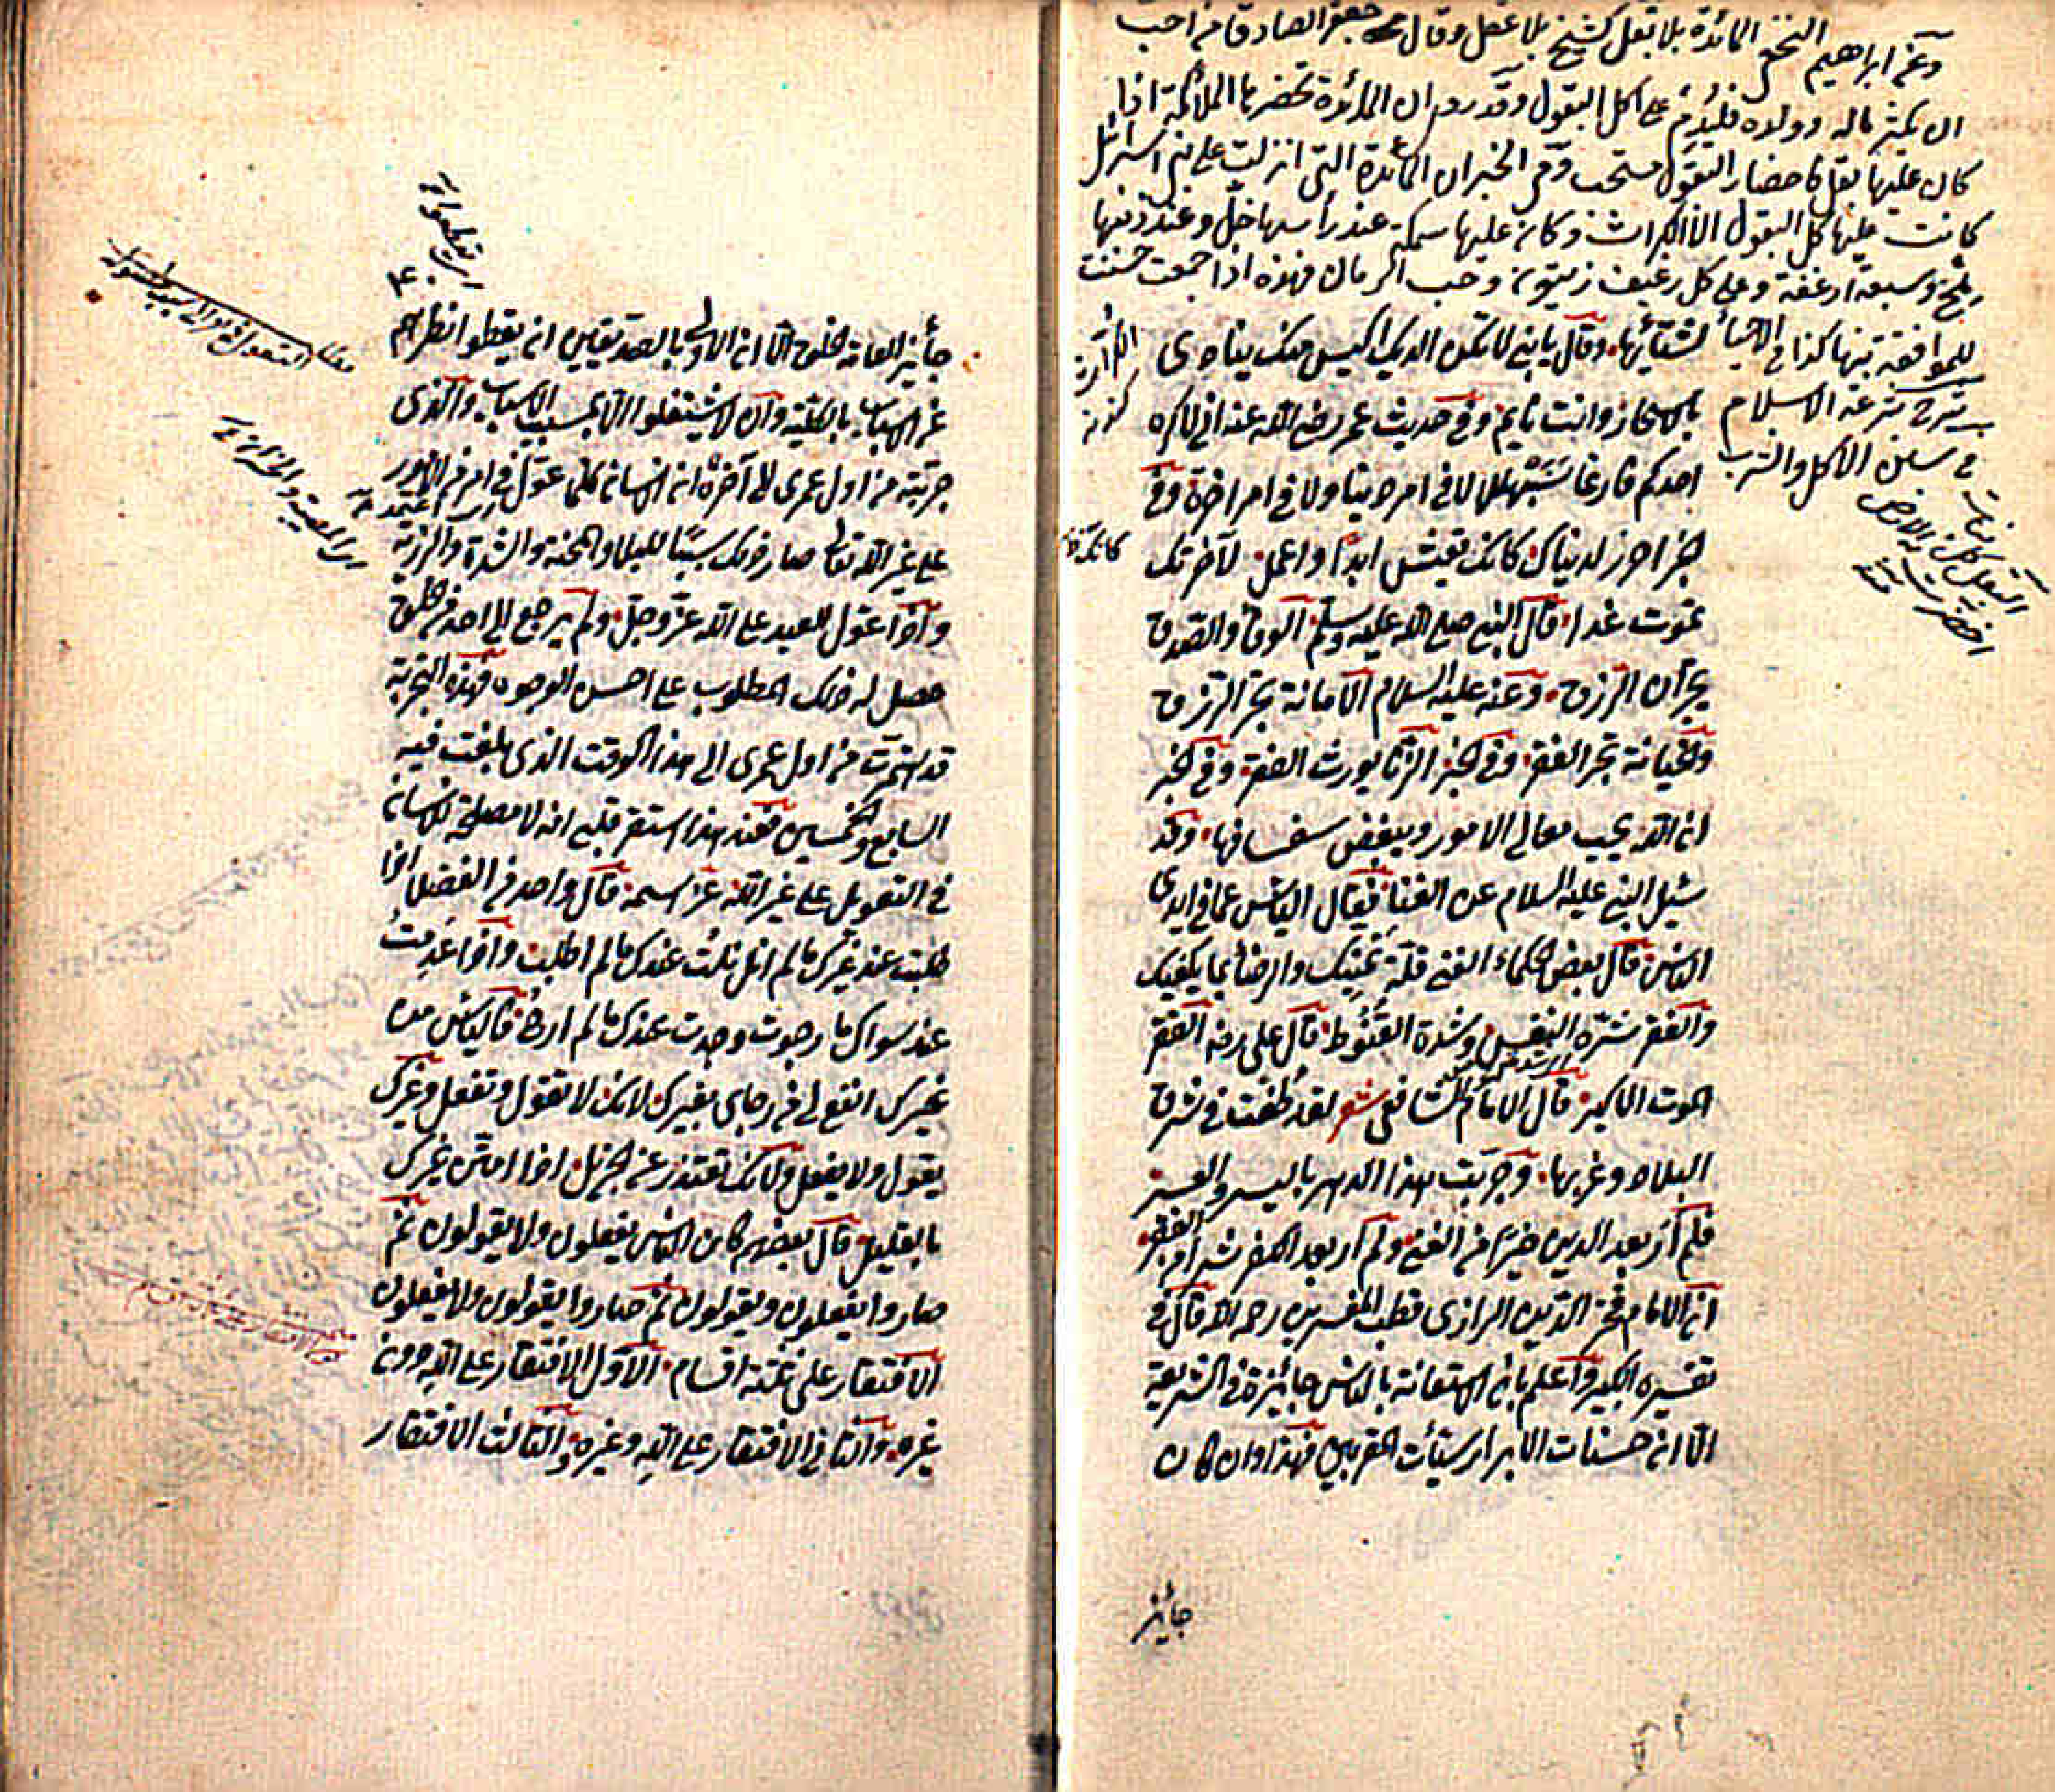 وعن ابراهيم النخعي المائدة بلا بقل كشيخ بلا عقل وقال جعفر الصادق من احب
ان يكثر ماله وولده فليدم على اكل البقول وقد ورد ان المائدة تحضرها الملائكة اذا
كان عليها بقل فاحضار البقول مستحب وفى الخبر ان المائدة التى انزلت على بنى اسرائل
كانت عليها كل البقول الا الكراث وكان عليها سمكة عند رأسها خل وعند ذنبها
ملح وسبعة ارغفة وعلى كل رغيف زيتون وحب الرمان فهذه اذا جمعت حسنت
للموافقة بينها كذا فى الاحياء
شرح شرعة الاسلام
فى سنن الاكل والشرب
البقل كل نبات
اخضرت به الارض
لشقائها وقال يا بنى لا تكن الديك اكيس منك ينادى
بالاسحار وانت نايم وفى حديث عمر رضى الله عنه انى لاكره
احدكم فارغا سبهللا لا فى امر دينا ولا فى امر اخرة وفى
خبر احرز لدنياك كانك تعيش ابدا واعمل لآخرتك
كانك
تموت غدا قال النبى صلى الله عليه وسلم الوفا والصدق
يجرّان الرزق وعنه عليه السلام الامانة تجر الرزق
والخيانة تجر الفقر وفى الخبر الزنا يورث الفقر وفى الخبر
ان الله يحب معالى الامور ويبغض سفسافها وقد
سئل النبى عليه السلام عن الغنا فقال الياس عما فى ايدى
الناس قال بعض الحكماء الغنى قلّة تمنيك والرضا بما يكفيك
والفقر شره النفس وشدة القنوط قال على رضه الفقر
الموت الاكبر قال الامام الشافعى شعر لقد طفت فى شرق
البلاد وغربها وجربت هذا الدهر باليسر والعسر
فلم أر بعد الدين خيرا من الغنى ولم أر بعد الكفر شرا من الفقر
ان الامام فخر الدين الرازى قطب المفسرين رحمه الله قال فى
تفسيره الكبير واعلم بان الاستعانة بالناس جائزة فى الشريعة
الا ان حسنات الابرار سيئات المقربين فهذا وان كان
جائز
جائز العامة الخلق الا ان الاولى بالصديقين ان يقطعوا نظرهم
عن الاسباب بالكلية وان لا يشتغلوا الا بمسبب الاسباب والذى
جربته من اول عمرى الى آخره ان الانسان كلما عوّل فى امر من الامور
على غير الله تعالى صار ذلك سببا للبلاء والمحنة والشدة والرزية
واذا عوّل العبد على الله عز وجل ولم يرجع الى احد من الخلق
حصل له ذلك المطلوب على احسن الوجوه فهذه التجربة
قد استمرت من اول عمرى الى هذا الوقت الذى بلغت فيه
السابع والخمسين فعند هذا استقر قلبى انه لا مصلحة للانسان
فى التعويل على غير الله عز اسمه قال واحد من الفضلا اذا
طلبت عند غيرك ما لم انل نلت عندك ما لم اطلب واذا عدمت
عند سواك ما رجوت وجدت عندك ما لم ارج فالياس من
غيرك انفع لى من رجاى بغيرك لانك لا تقول وتفعل وغيرك
يقول ولا يفعل ولانك تعتذر عن الجزيل اذا امتن غيرك
بالقليل قال بعضهم كان الناس يفعلون ولا يقولون ثم
صاروا يفعلون ويقولون ثم صاروا يقولون ولا يفعلون
الافتقار على ثلثة اقسام الاول الافتقار على الله دون
غيره والثانى الافتقار على الله وغيره والثالث الافتقار